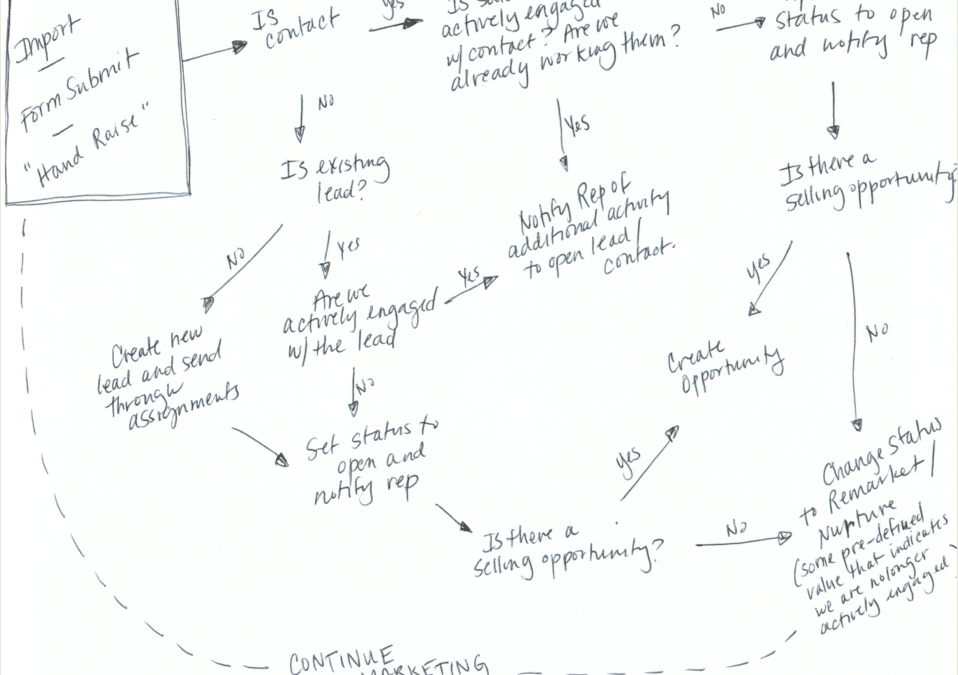 Import
Form Submit
"Hand Raise"
Is
contact
yes
Is
actively engaged
w/ contact? Are we
already working them?
No
status to open
and notify rep
No
Yes
Is existing
lead?
Is there a
selling opportunity
Notify Rep of
additional activity
to open lead/
contact.
No
Yes
Yes
yes
No
Are we
actively engaged
w/ the lead
Create new
lead and send
through
assignments
Create
Opportunity
No
Set status to
open and
notify rep
yes
Change Status
to Remarket/
Nurture
(some pre-defined
value that indicates
we are no longer
actively engaged)
Is there a
selling opportunity?
No
CONTINUE
MARKETING